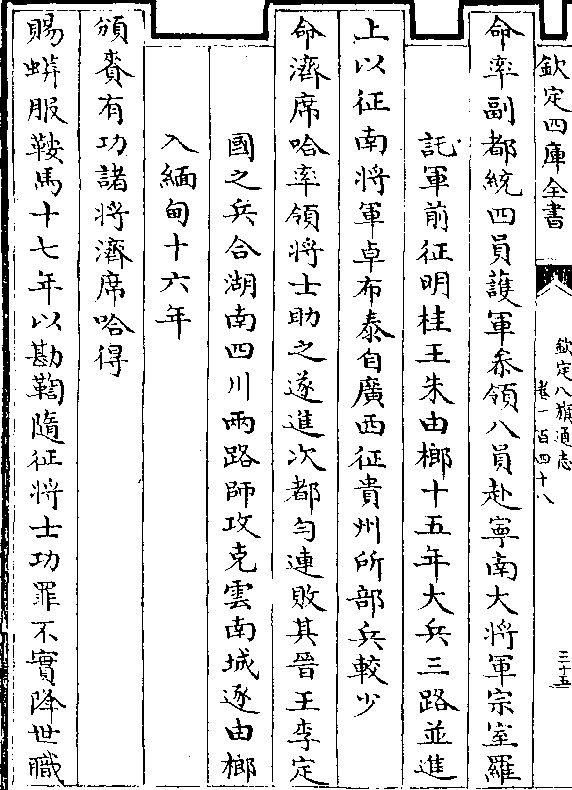 欽定四庫全書
欽定八旗通志
卷一百四十八
三十五
命率副都統四員護軍叅領八員赴寧南大將軍宗室羅
託軍前征明桂王朱由榔十五年大兵三路並進
上以征南將軍卓布泰自廣西征貴州所部兵較少
命濟席哈率領將士助之遂進次都勻連敗其晉王李定
國之兵合湖南四川兩路師攻克雲南城逐由榔
入緬甸十六年
頒賚有功諸將濟席哈得
賜蟒服鞍馬十七年以勘鞫隨征將士功罪不實降世職